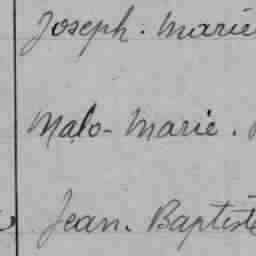 Joseph. Marie
Malo-Marie.
Jean. Baptiste